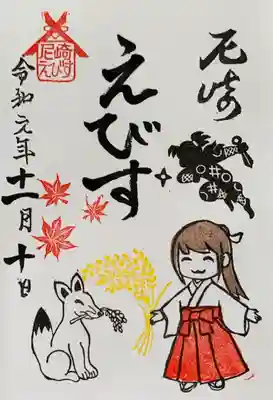 尼崎
えびす
尼崎えびす
令和元年十一月十日